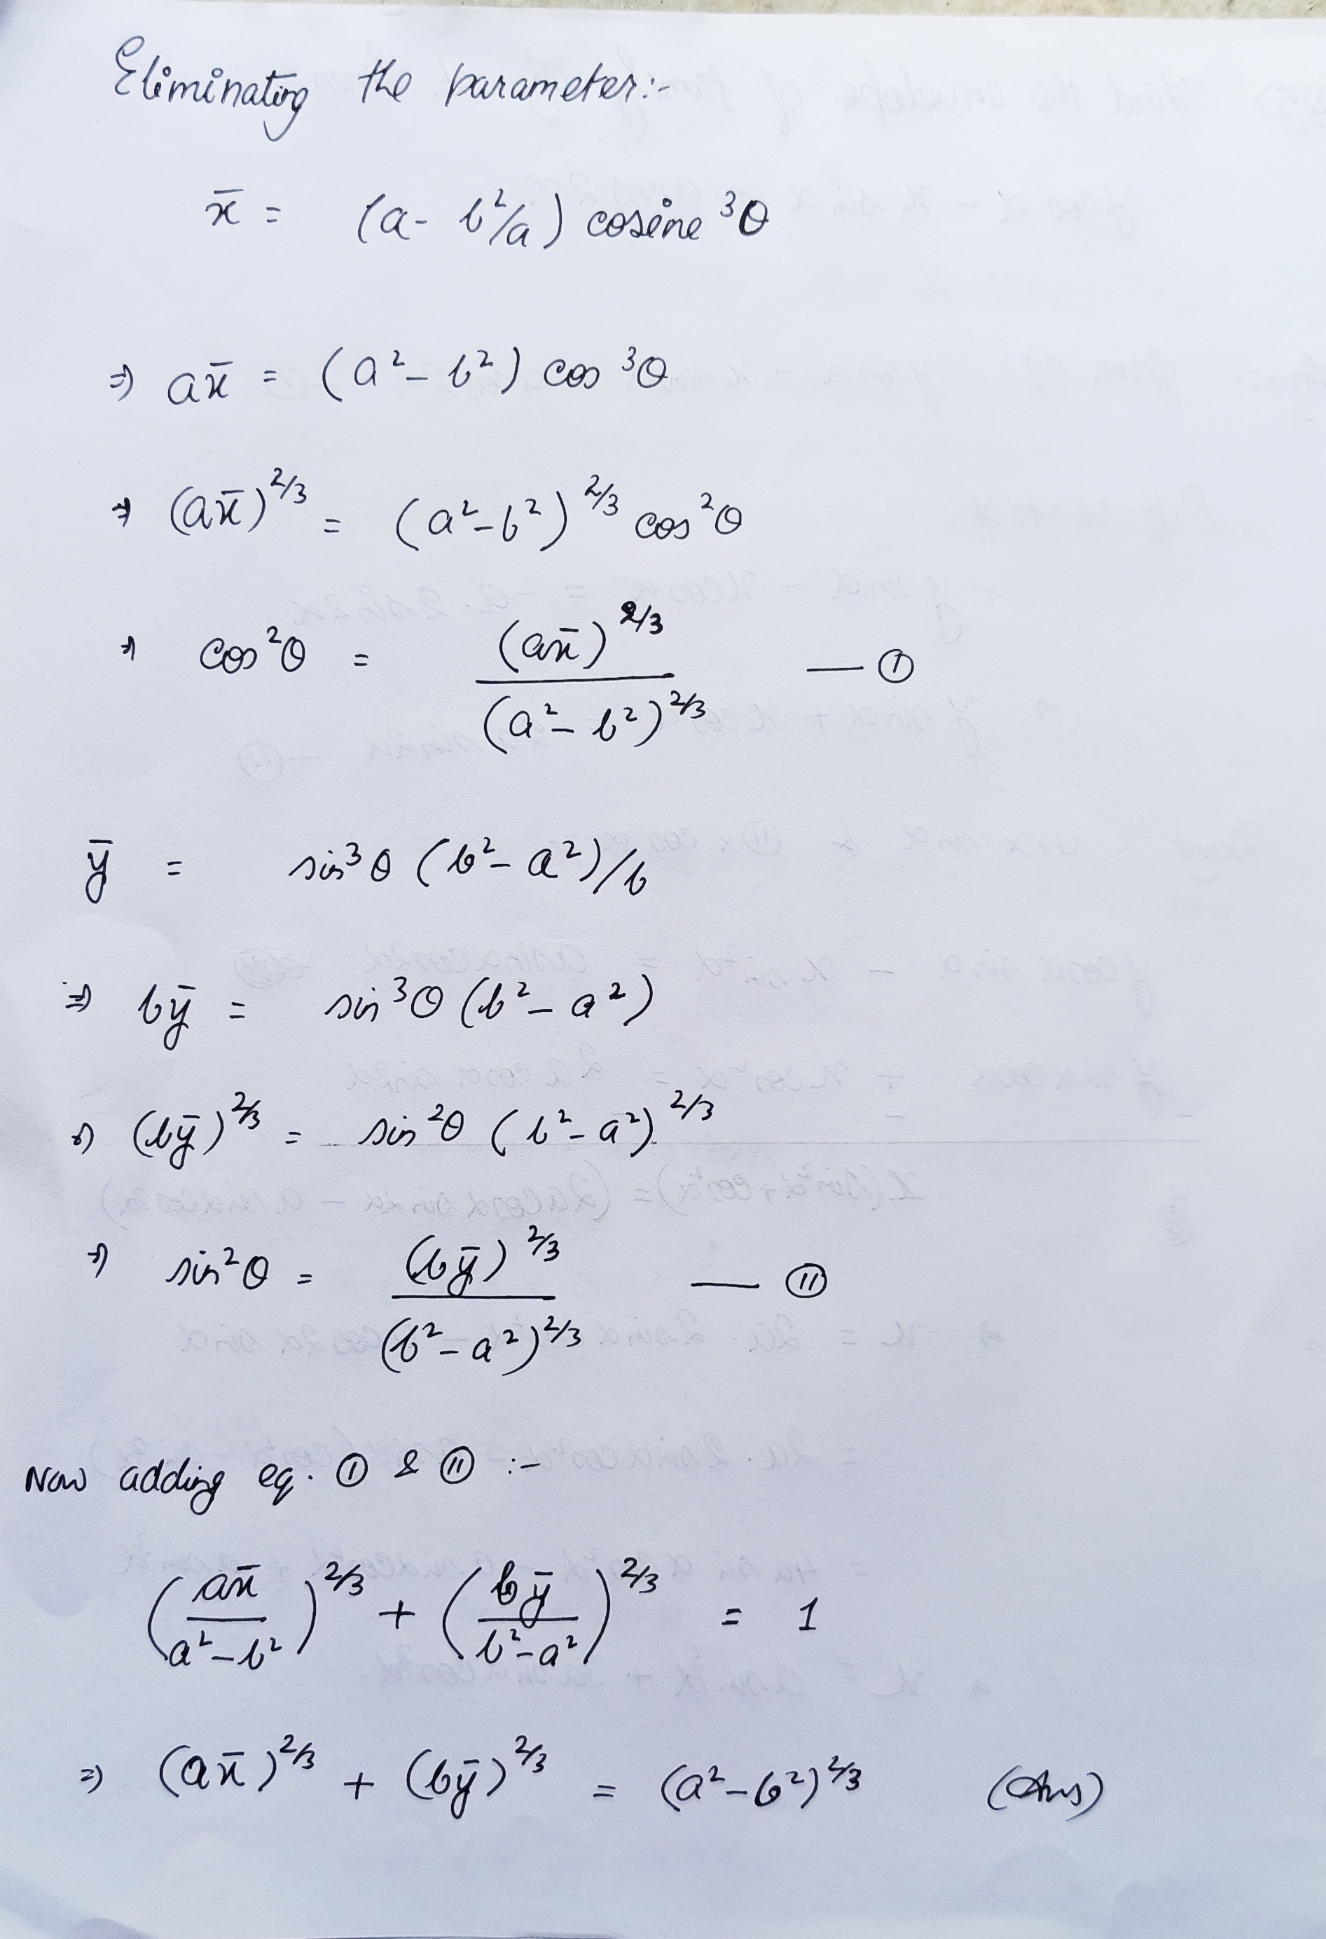 Eliminating the parameter:-
x̄ = (a - b²/a) cosine ³θ
⇒ ax̄ = (a² - b²) cos ³θ
⇒ (ax̄)^2/3 = (a² - b²)^2/3 cos²θ
⇒ cos²θ = (ax̄)^2/3 / (a² - b²)^2/3 — (I)
ȳ = sin³θ (b² - a²)/b
⇒ bȳ = sin³θ (b² - a²)
⇒ (bȳ)^2/3 = sin²θ (b² - a²)^2/3
⇒ sin²θ = (bȳ)^2/3 / (b² - a²)^2/3 — (II)
Now adding eq. (I) & (II) :-
(ax̄ / a² - b²)^2/3 + (bȳ / b² - a²)^2/3 = 1
⇒ (ax̄)^2/3 + (bȳ)^2/3 = (a² - b²)^2/3 (Ans)